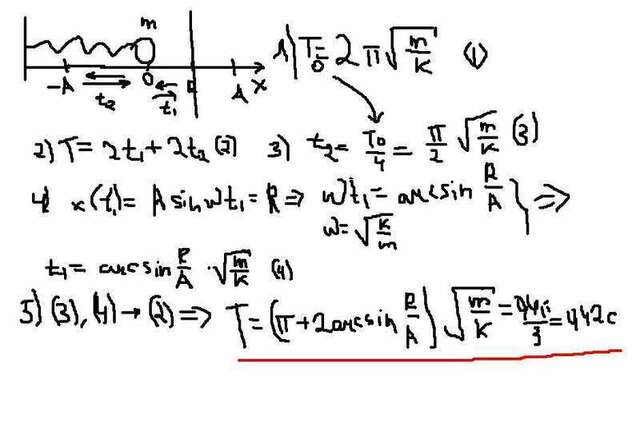 m
1) T₀ = 2π√(m/k) (1)
-A 0 A x
t₂ t₁
2) T = 2t₁ + 2t₂ (2) 3) t₂ = T₀/4 = π/2 √(m/k) (3)
4) x(t₁) = A sin ωt₁ = R ⇒ ωt₁ = arcsin R/A } ⇒
ω = √(k/m)
t₁ = arcsin R/A · √(m/k) (4)
5) (3), (4) → (2) ⇒ T = (π + 2 arcsin R/A) √(m/k) = = 442c